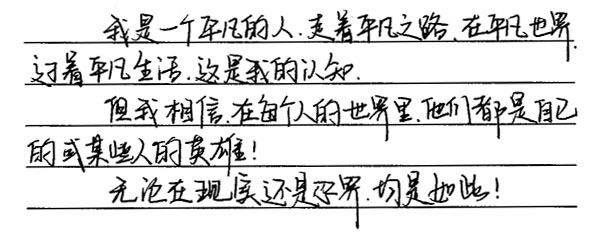 我是一个平凡的人.走着平凡之路.在平凡世界.
过着平凡生活.这是我的认知.
但我相信.在每个人的世界里.他们都是自己
的或某些人的英雄!
无论在现实还是环界.均是如此!